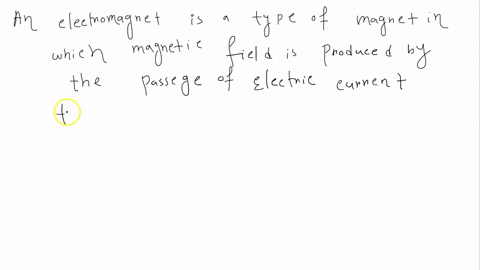 An electromagnet is a type of magnet in
which magnetic field is produced by
the passege of electric current
t